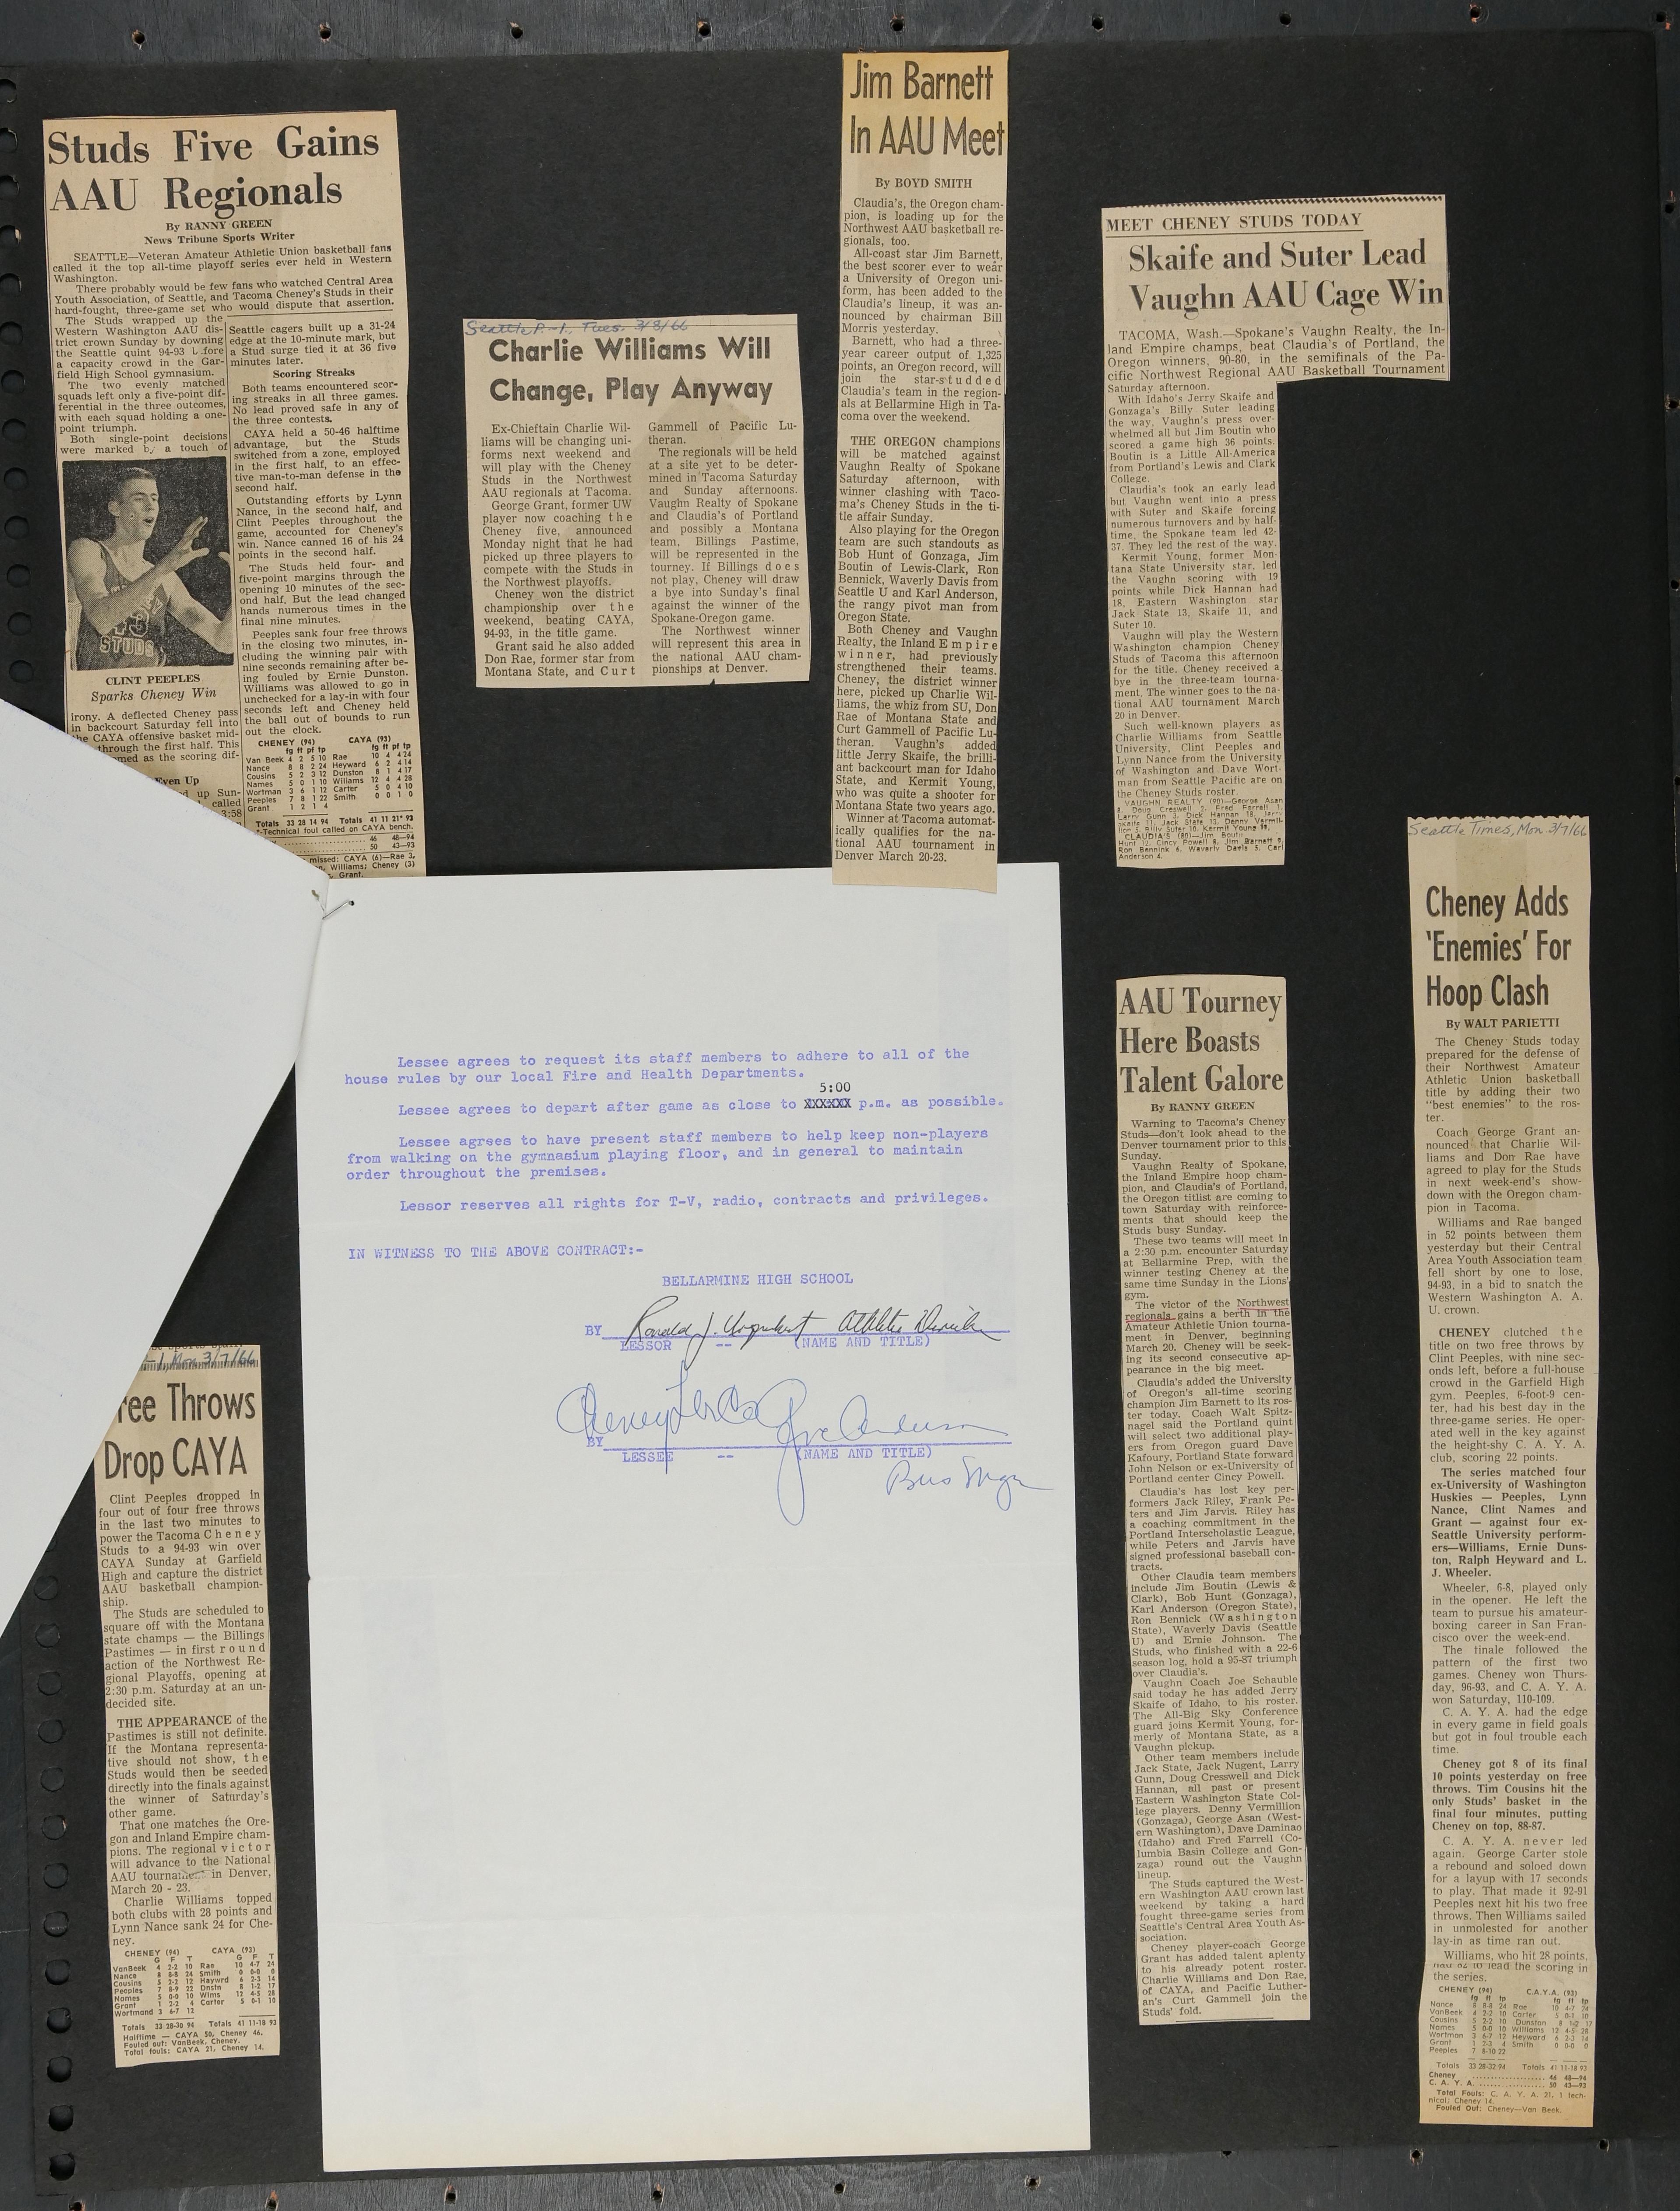 Studs Five Gains
AAU Regionals
By RANNY GREEN
News Tribune Sports Writer
SEATTLE—Veteran Amateur Athletic Union basketball fans
called it the top all-time playoff series ever held in Western
Washington.
There probably would be few fans who watched Central Area
Youth Association, of Seattle, and Tacoma Cheney's Studs in their
hard-fought, three-game set who would dispute that assertion.
The Studs wrapped up the
Western Washington AAU dis-
trict crown Sunday by downing
the Seattle quint 94-93 before
a capacity crowd in the Gar-
field High School gymnasium.
The two evenly matched
squads left only a five-point dif-
ferential in the three outcomes,
with each squad holding a one-
point triumph.
Both single-point decisions
were marked by a touch of
STUDS
CLINT PEEPLES
Sparks Cheney Win
irony. A deflected Cheney pass
in backcourt Saturday fell into
the CAYA offensive basket mid-
through the first half. This
med as the scoring dif-
Even Up
ed up Sun-
called
3:58
Seattle cagers built up a 31-24
edge at the 10-minute mark, but
a Stud surge tied it at 36 five
minutes later.
Scoring Streaks
Both teams encountered scor-
ing streaks in all three games.
No lead proved safe in any of
the three contests.
CAYA held a 50-46 halftime
advantage, but the Studs
switched from a zone, employed
in the first half, to an effec-
tive man-to-man defense in the
second half.
Outstanding efforts by Lynn
Nance, in the second half, and
Clint Peeples throughout the
game, accounted for Cheney's
win. Nance canned 16 of his 24
points in the second half.
The Studs held four- and
five-point margins through the
opening 10 minutes of the sec-
ond half. But the lead changed
hands numerous times in the
final nine minutes.
Peeples sank four free throws
in the closing two minutes, in-
cluding the winning pair with
nine seconds remaining after be-
ing fouled by Ernie Dunston.
Williams was allowed to go in
unchecked for a lay-in with four
seconds left and Cheney held
the ball out of bounds to run
out the clock.
CHENEY (94) CAYA (93)
fg ft pf tp fg ft pf tp
Van Beek 4 2 5 10 Rae 10 4 4 24
Nance 8 8 2 24 Heyward 6 2 4 14
Cousins 5 2 3 12 Dunston 8 1 4 17
Names 5 0 1 10 Wiliams 12 4 4 28
Wortman 3 6 1 12 Carter 5 0 4 10
Peeples 7 8 1 22 Smith 0 0 1 0
Grant 1 2 1 4
Totals 33 28 14 94 Totals 41 11 21* 93
*-Technical foul called on CAYA bench.
46 48—94
50 43—93
missed: CAYA (6)—Rae 3,
Williams; Cheney (3)
Grant.
Seattle P.-I., Tues. 3/8/66
Charlie Williams Will
Change, Play Anyway
Ex-Chieftain Charlie Wil-
liams will be changing uni-
forms next weekend and
will play with the Cheney
Studs in the Northwest
AAU regionals at Tacoma.
George Grant, former UW
player now coaching the
Cheney five, announced
Monday night that he had
picked up three players to
compete with the Studs in
the Northwest playoffs.
Cheney won the district
championship over the
weekend, beating CAYA,
94-93, in the title game.
Grant said he also added
Don Rae, former star from
Montana State, and Curt
Gammell of Pacific Lu-
theran.
The regionals will be held
at a site yet to be deter-
mined in Tacoma Saturday
and Sunday afternoons.
Vaughn Realty of Spokane
and Claudia's of Portland
and possibly a Montana
team, Billings Pastime,
will be represented in the
tourney. If Billings does
not play, Cheney will draw
a bye into Sunday's final
against the winner of the
Spokane-Oregon game.
The Northwest winner
will represent this area in
the national AAU cham-
pionships at Denver.
Jim Barnett
In AAU Meet
By BOYD SMITH
Claudia's, the Oregon cham-
pion, is loading up for the
Northwest AAU basketball re-
gionals, too.
All-coast star Jim Barnett,
the best scorer ever to wear
a University of Oregon uni-
form, has been added to the
Claudia's lineup, it was an-
nounced by chairman Bill
Morris yesterday.
Barnett, who had a three-
year career output of 1,325
points, an Oregon record, will
join the star-studded
Claudia's team in the region-
als at Bellarmine High in Ta-
coma over the weekend.
THE OREGON champions
will be matched against
Vaughn Realty of Spokane
Saturday afternoon, with
winner clashing with Taco-
ma's Cheney Studs in the ti-
tle affair Sunday.
Also playing for the Oregon
team are such standouts as
Bob Hunt of Gonzaga, Jim
Boutin of Lewis-Clark, Ron
Bennick, Waverly Davis from
Seattle U and Karl Anderson,
the rangy pivot man from
Oregon State.
Both Cheney and Vaughn
Realty, the Inland Empire
winner, had previously
strengthened their teams.
Cheney, the district winner
here, picked up Charlie Wil-
liams, the whiz from SU, Don
Rae of Montana State and
Curt Gammell of Pacific Lu-
theran. Vaughn's added
little Jerry Skaife, the brilli-
ant backcourt man for Idaho
State, and Kermit Young,
who was quite a shooter for
Montana State two years ago.
Winner at Tacoma automat-
ically qualifies for the na-
tional AAU tournament in
Denver March 20-23.
MEET CHENEY STUDS TODAY
Skaife and Suter Lead
Vaughn AAU Cage Win
TACOMA, Wash.—Spokane's Vaughn Realty, the In-
land Empire champs, beat Claudia's of Portland, the
Oregon winners, 90-80, in the semifinals of the Pa-
cific Northwest Regional AAU Basketball Tournament
Saturday afternoon.
With Idaho's Jerry Skaife and
Gonzaga's Billy Suter leading
the way, Vaughn's press over-
whelmed all but Jim Boutin who
scored a game high 36 points.
Boutin is a Little All-America
from Portland's Lewis and Clark
College.
Claudia's took an early lead
but Vaughn went into a press
with Suter and Skaife forcing
numerous turnovers and by half-
time, the Spokane team led 42-
37. They led the rest of the way.
Kermit Young, former Mon-
tana State University star, led
the Vaughn scoring with 19
points while Dick Hannan had
18, Eastern Washington star
Jack State 13, Skaife 11, and
Suter 10.
Vaughn will play the Western
Washington champion Cheney
Studs of Tacoma this afternoon
for the title. Cheney received a
bye in the three-team tourna-
ment. The winner goes to the na-
tional AAU tournament March
20 in Denver.
Such well-known players as
Charlie Williams from Seattle
University, Clint Peeples and
Lynn Nance from the University
of Washington and Dave Wort-
man from Seattle Pacific are on
the Cheney Studs roster.
VAUGHN REALTY (90)—George Asan
8, Doug Creswell 2, Fred Farrell 1,
Larry Gunn 3, Dick Hannan 18, Jerry
Skaife 11, Jack State 13, Denny Vermil-
lion 5, Billy Suter 10, Kermit Young 19.
CLAUDIA'S (80)—Jim Boutin
Hunt 12, Cincy Powell 8, Jim Barnett 9,
Ron Bennink 6, Waverly Davis 5, Carl
Anderson 4.
Seattle Times, Mon 3/7/66
Cheney Adds
'Enemies' For
Hoop Clash
By WALT PARIETTI
The Cheney Studs today
prepared for the defense of
their Northwest Amateur
Athletic Union basketball
title by adding their two
"best enemies" to the ros-
ter.
Coach George Grant an-
nounced that Charlie Wil-
liams and Don Rae have
agreed to play for the Studs
in next week-end's show-
down with the Oregon cham-
pion in Tacoma.
Williams and Rae banged
in 52 points between them
yesterday but their Central
Area Youth Association team
fell short by one to lose,
94-93, in a bid to snatch the
Western Washington A. A.
U. crown.
CHENEY clutched the
title on two free throws by
Clint Peeples, with nine sec-
onds left, before a full-house
crowd in the Garfield High
gym. Peeples, 6-foot-9 cen-
ter, had his best day in the
three-game series. He oper-
ated well in the key against
the height-shy C. A. Y. A.
club, scoring 22 points.
The series matched four
ex-University of Washington
Huskies — Peeples, Lynn
Nance, Clint Names and
Grant — against four ex-
Seattle University perform-
ers—Williams, Ernie Duns-
ton, Ralph Heyward and L.
J. Wheeler.
Wheeler, 6-8, played only
in the opener. He left the
team to pursue his amateur-
boxing career in San Fran-
cisco over the week-end.
The finale followed the
pattern of the first two
games. Cheney won Thurs-
day, 96-93, and C. A. Y. A.
won Saturday, 110-109.
C. A. Y. A. had the edge
in every game in field goals
but got in foul trouble each
time.
Cheney got 8 of its final
10 points yesterday on free
throws. Tim Cousins hit the
only Studs' basket in the
final four minutes, putting
Cheney on top, 88-87.
C. A. Y. A. never led
again. George Carter stole
a rebound and soloed down
for a layup with 17 seconds
to play. That made it 92-91
Peeples next hit his two free
throws. Then Williams sailed
in unmolested for another
lay-in as time ran out.
Williams, who hit 28 points,
had 82 to lead the scoring in
the series.
CHENEY (94) C.A.Y.A. (93)
fg ft tp fg ft tp
Nance 8 8-8 24 Rae 10 4-7 24
VanBeek 4 2-2 10 Carter 5 0-1 10
Cousins 5 2-2 10 Dunston 8 1-2 17
Names 5 0-0 10 Williams 12 4-5 28
Wortman 3 6-7 12 Heyward 6 2-3 14
Grant 1 2-3 4 Smith 0 0-0 0
Peeples 7 8-10 22
Totals 33 28-32 94 Totals 41 11-18 93
Cheney 46 48—94
C. A. Y. A. 50 43—93
Total Fouls: C. A. Y. A. 21, 1 tech-
nical; Cheney 14.
Fouled Out: Cheney—Van Beek.
AAU Tourney
Here Boasts
Talent Galore
By RANNY GREEN
Warning to Tacoma's Cheney
Studs—don't look ahead to the
Denver tournament prior to this
Sunday.
Vaughn Realty of Spokane,
the Inland Empire hoop cham-
pion, and Claudia's of Portland,
the Oregon titlist are coming to
town Saturday with reinforce-
ments that should keep the
Studs busy Sunday.
These two teams will meet in
a 2:30 p.m. encounter Saturday
at Bellarmine Prep, with the
winner testing Cheney at the
same time Sunday in the Lions'
gym.
The victor of the Northwest
regionals gains a berth in the
Amateur Athletic Union tourna-
ment in Denver, beginning
March 20. Cheney will be seek-
ing its second consecutive ap-
pearance in the big meet.
Claudia's added the University
of Oregon's all-time scoring
champion Jim Barnett to its ros-
ter today. Coach Walt Spitz-
nagel said the Portland quint
will select two additional play-
ers from Oregon guard Dave
Kafoury, Portland State forward
John Nelson or ex-University of
Portland center Cincy Powell.
Claudia's has lost key per-
formers Jack Riley, Frank Pe-
ters and Jim Jarvis. Riley has
a coaching commitment in the
Portland Interscholastic League,
while Peters and Jarvis have
signed professional baseball con-
tracts.
Other Claudia team members
include Jim Boutin (Lewis &
Clark), Bob Hunt (Gonzaga),
Karl Anderson (Oregon State),
Ron Bennick (Washington
State), Waverly Davis (Seattle
U) and Ernie Johnson. The
Studs, who finished with a 22-6
season log, hold a 95-87 triumph
over Claudia's.
Vaughn Coach Joe Schauble
said today he has added Jerry
Skaife of Idaho, to his roster.
The All-Big Sky Conference
guard joins Kermit Young, for-
merly of Montana State, as a
Vaughn pickup.
Other team members include
Jack State, Jack Nugent, Larry
Gunn, Doug Cresswell and Dick
Hannan, all past or present
Eastern Washington State Col-
lege players. Denny Vermillion
(Gonzaga), George Asan (West-
ern Washington), Dave Daminao
(Idaho) and Fred Farrell (Co-
lumbia Basin College and Gon-
zaga) round out the Vaughn
lineup.
The Studs captured the West-
ern Washington AAU crown last
weekend by taking a hard
fought three-game series from
Seattle's Central Area Youth As-
sociation.
Cheney player-coach George
Grant has added talent aplenty
to his already potent roster.
Charlie Williams and Don Rae,
of CAYA, and Pacific Luther-
an's Curt Gammell join the
Studs' fold.
Lessee agrees to request its staff members to adhere to all of the
house rules by our local Fire and Health Departments.
5:00
Lessee agrees to depart after game as close to XXXXXX p.m. as possible.
Lessee agrees to have present staff members to help keep non-players
from walking on the gymnasium playing floor, and in general to maintain
order throughout the premises.
Lessor reserves all rights for T-V, radio, contracts and privileges.
IN WITNESS TO THE ABOVE CONTRACT:-
BELLARMINE HIGH SCHOOL
BY Ronald J. Urquhart Athletic Director
LESSOR -- (NAME AND TITLE)
Cheney Lbr Co Joe Anderson
BY
LESSEE -- (NAME AND TITLE)
Bus Mgr
-I, Mon. 3/7/66
ree Throws
Drop CAYA
Clint Peeples dropped in
four out of four free throws
in the last two minutes to
power the Tacoma Cheney
Studs to a 94-93 win over
CAYA Sunday at Garfield
High and capture the district
AAU basketball champion-
ship.
The Studs are scheduled to
square off with the Montana
state champs — the Billings
Pastimes — in first round
action of the Northwest Re-
gional Playoffs, opening at
2:30 p.m. Saturday at an un-
decided site.
THE APPEARANCE of the
Pastimes is still not definite.
If the Montana representa-
tive should not show, the
Studs would then be seeded
directly into the finals against
the winner of Saturday's
other game.
That one matches the Ore-
gon and Inland Empire cham-
pions. The regional victor
will advance to the National
AAU tournament in Denver,
March 20 - 23.
Charlie Williams topped
both clubs with 28 points and
Lynn Nance sank 24 for Che-
ney.
CHENEY (94) CAYA (93)
G F T G F T
VanBeek 4 2-2 10 Rae 10 4-7 24
Nance 8 8-8 24 Smith 0 0-0 0
Cousins 5 2-2 12 Haywrd 6 2-3 14
Peoples 7 8-9 22 Dnstn 8 1-2 17
Names 5 0-0 10 Wlms 12 4-5 28
Grant 1 2-2 4 Carter 5 0-1 10
Wortmand 3 6-7 12
Totals 33 28-30 94 Totals 41 11-18 93
Halftime — CAYA 50, Cheney 46.
Fouled out: VanBeek, Cheney.
Total fouls: CAYA 21, Cheney 14.